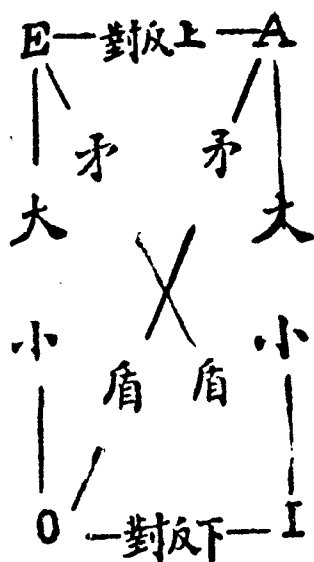 E 對反上 A
矛 矛
大 大
小 小
盾 盾
O 對反下 I